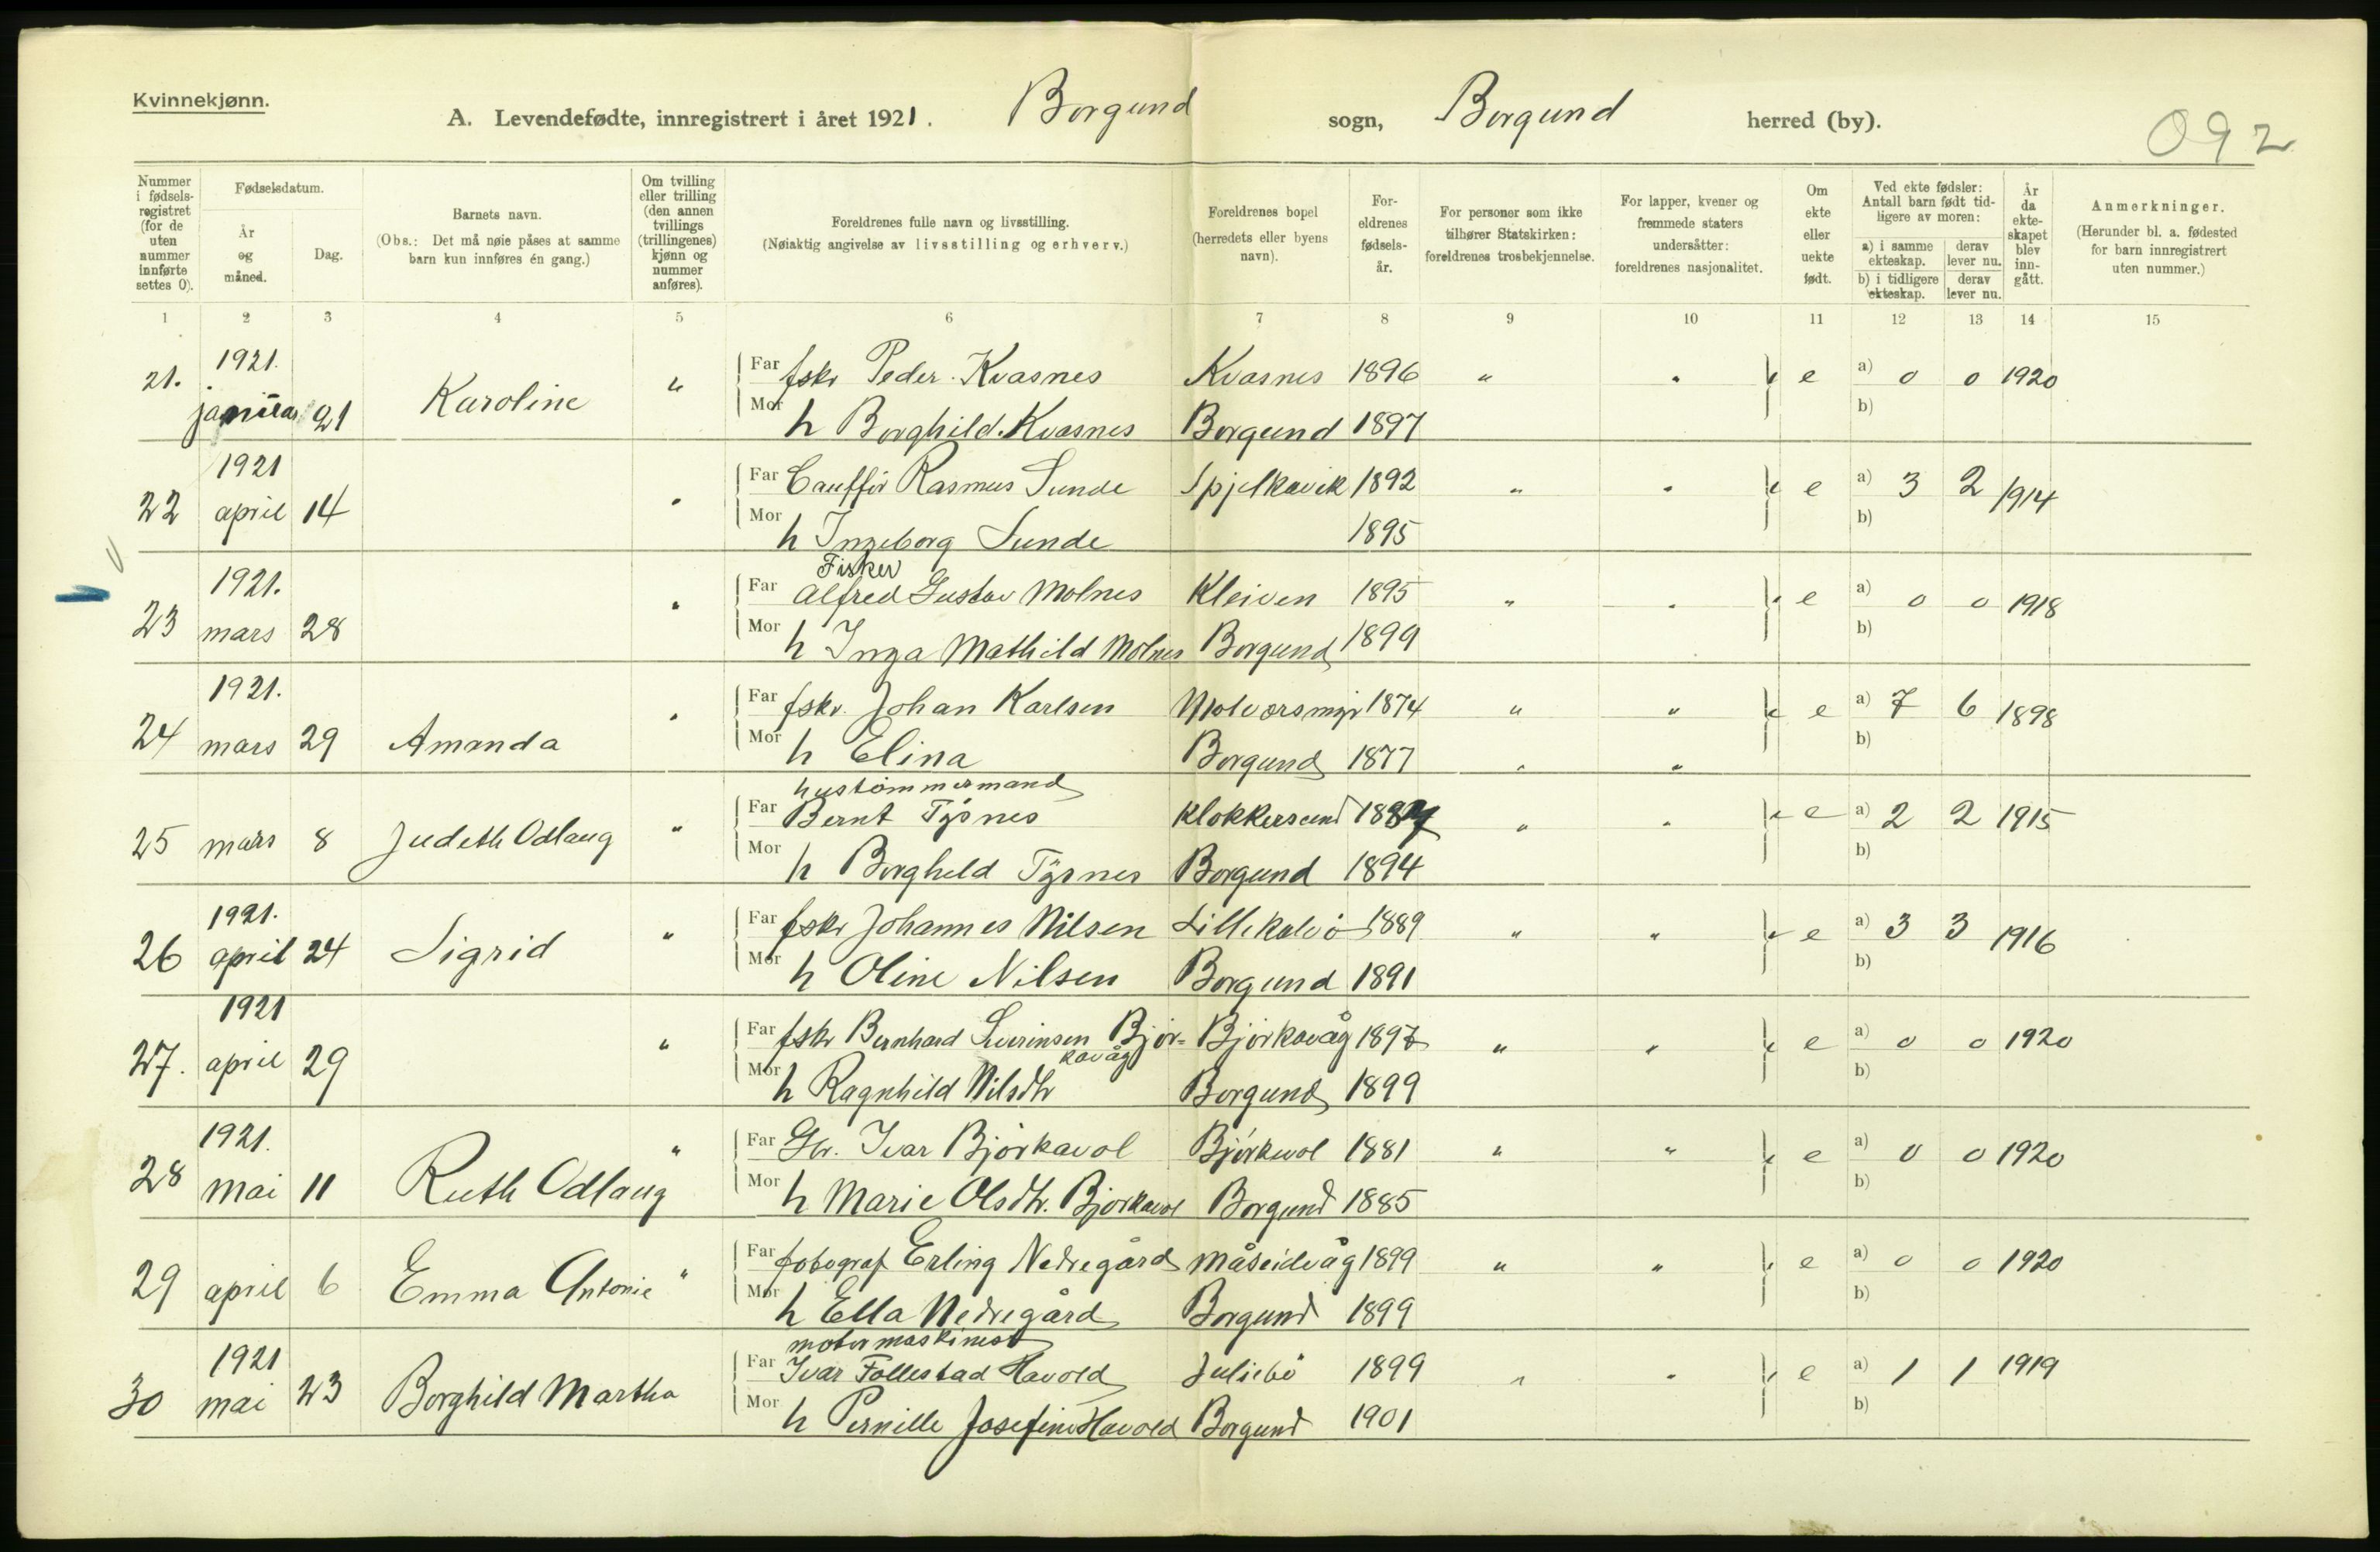 Kvinnekjønn.
A. Levendefødte, innregistrert i året 1921. Borgund sogn, Borgund herred (by).
092
Nummer i fødsels-registret (for de uten nummer innførte settes 0).
Fødselsdatum.
År og måned.
Dag.
Barnets navn.
(Obs.: Det må nøie påses at samme barn kun innføres én gang.)
Om tvilling eller trilling (den annen tvillings (trillingenes) kjønn og nummer anføres).
Foreldrenes fulle navn og livsstilling.
(Nøiaktig angivelse av livsstilling og erhverv.)
Foreldrenes bopel (herredets eller byens navn).
For-eldrenes fødsels-år.
For personer som ikke tilhører Statskirken: foreldrenes trosbekjennelse.
For lapper, kvener og fremmede staters undersåtter: foreldrenes nasjonalitet.
Om ekte eller uekte født.
Ved ekte fødsler: Antall barn født tid-ligere av moren:
a) i samme ekteskap.
derav lever nu.
b) i tidligere ekteskap.
derav lever nu.
År da ekte-skapet blev inn-gått.
Anmerkninger.
(Herunder bl. a. fødested for barn innregistrert uten nummer.)
1 2 3 4 5 6 7 8 9 10 11 12 13 14 15
21. 1921. januar 21 Karoline " Far fskr Peder Kvasnes Kvasnes 1896 " " e a) 0 0 1920
Mor h Borghild Kvasnes Borgund 1897 b)
22 1921 april 14 " Far Cauffør Rasmus Sunde Spjelkavik 1892 " " e a) 3 2 1914
Mor h Ingeborg Sunde 1895 b)
Fisker
23 1921. mars 28 " Far Alfred Gustav Molnes Kleiven 1895 " " e a) 0 0 1918
Mor h Inga Mathild Molnes Borgund 1899 b)
24 1921. mars 29 Amanda " Far fskr. Johan Karlsen Molværsmyr 1874 " " e a) 7 6 1898
Mor h Elina Borgund 1877 " " b)
hustømmermand
25 mars 8 Judeth Odlaug " Far Bernt Tysnes Klokkersund 1887 " " e a) 2 2 1915
Mor h Borghild Tysnes Borgund 1894 b)
26 1921. april 24 Sigrid " Far fskr Johannes Nilsen Lillekalvø 1889 " " e a) 3 3 1916
Mor h Oline Nilsen Borgund 1891 b)
27. 1921 april 29 " Far fskr Bernhard Severinsen Bjør= Bjørkavåg 1897 " " e a) 0 0 1920
kavåg
Mor h Ragnhild Nilsdtr Borgund 1899 b)
28 1921. mai 11 Ruth Odlaug " Far Gbr. Ivar Bjørkavol Bjørkavol 1881 " " e a) 0 0 1920
Mor h Marie Olsdtr. Bjørkavol Borgund 1885 b)
29 april 6 Emma Antonie " Far fotograf Erling Nedregård Måseidvåg 1899 " " e a) 0 0 1920
Mor h Ella Nedregård Borgund 1899 b)
motormaskinist
30 1921 mai 23 Borghild Martha Far Ivar Follestad Havold Juliebø 1899 " " e a) 1 1 1919
Mor h Pernille Josefine Havold Borgund 1901 b)